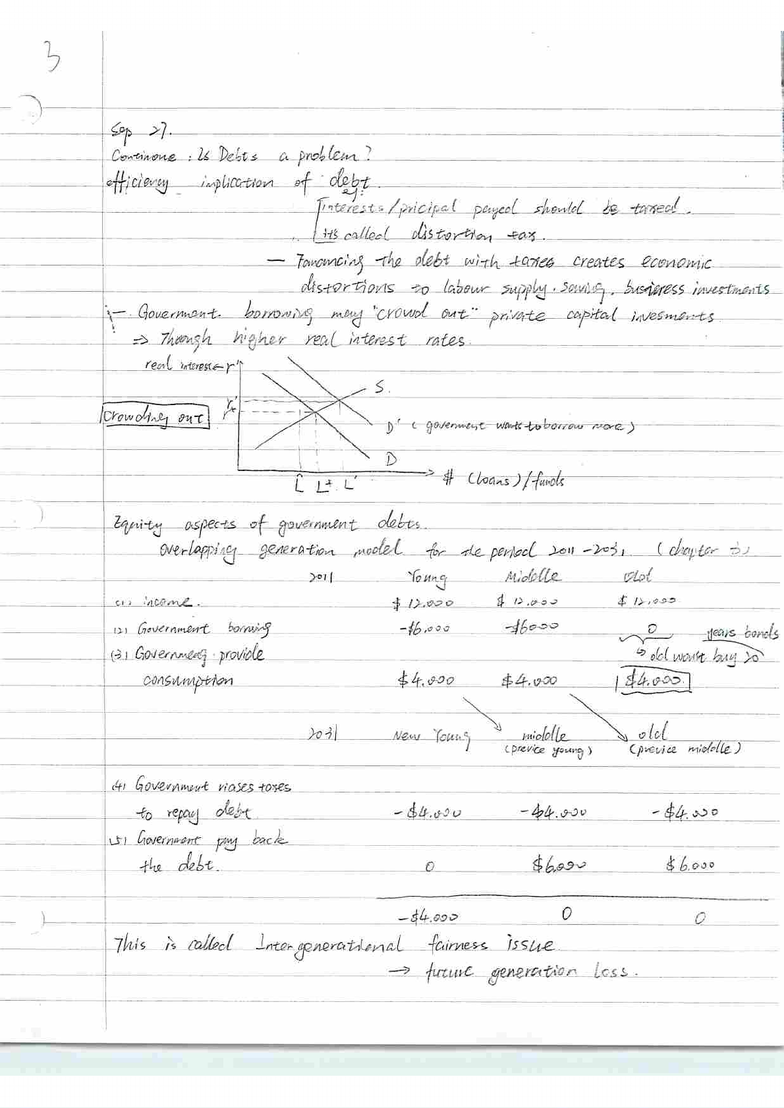 3
Sep 27.
Continone : Is Debts a problem?
efficiency implication of debt.
Interests/pricipal payed should be taxed.
its called distortion tax.
— Fanancing the debt with taxes creates economic
distortions to labour supply. saving. business investments
— Goverment borrowing may "crowd out" private capital invesments
⇒ Though higher real interest rates.
real interest r
S.
r'
r*
Crowding out
D' ( government wants to borrow more )
D
L̂ L* L' $ (loans) / funds
Equity aspects of government debts.
overlapping generation model for the period 2011 - 2031 ( chapter 3 )
2011 Young Middle Old
(1) income. $ 12.000 $ 12.000 $ 12.000
(2) Government borrwing -$6.000 -$6000 0 years bonds
(3) Government provide old wount buy 20
consumption $4.000 $4.000 $4.000.
2031 New Young middle old
(previce young) (previce middle)
(4) Government riases taxes
to repay debt -$4.000 -$4.000 -$4.000
(5) Government pay back
the debt. 0 $6.000 $6.000
-$4.000 0 0
This is called Intergenerational fairness issue
→ future generation loss.